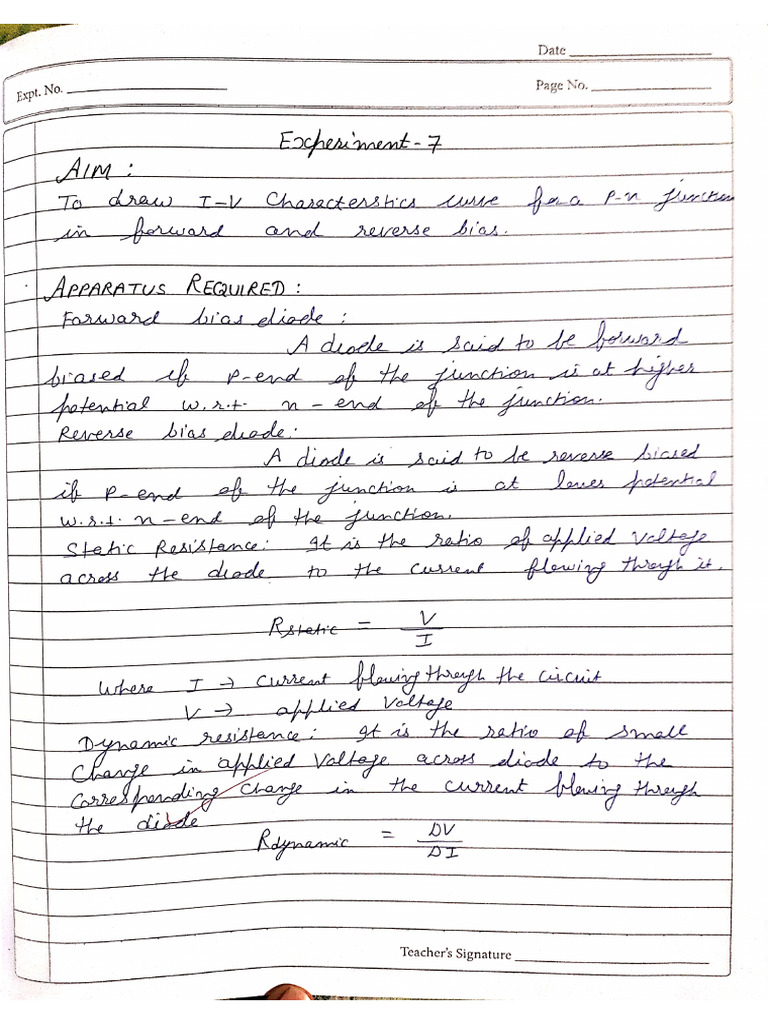 Date
Expt. No.
Page No.
Experiment-7
AIM :
To draw I-V Characterstics curve for a P-n junction
in forward and reverse bias.
APPARATUS REQUIRED :
Forward bias diode :
A diode is said to be forward
biased if P-end of the junction is at higher
potential w.r.t. n-end of the junction.
Reverse bias diode:
A diode is said to be reverse biased
if P-end of the junction is at lower potential
w.r.t. n-end of the junction.
Static Resistance: It is the ratio of applied voltage
across the diode to the current flowing through it.
Rstatic = V/I
Where I → current flowing through the circuit
V → applied Voltage
Dynamic resistance: It is the ratio of small
Change in applied Voltage across diode to the
Corresponding change in the current flowing through
the diode
Rdynamic = DV/DI
Teacher's Signature